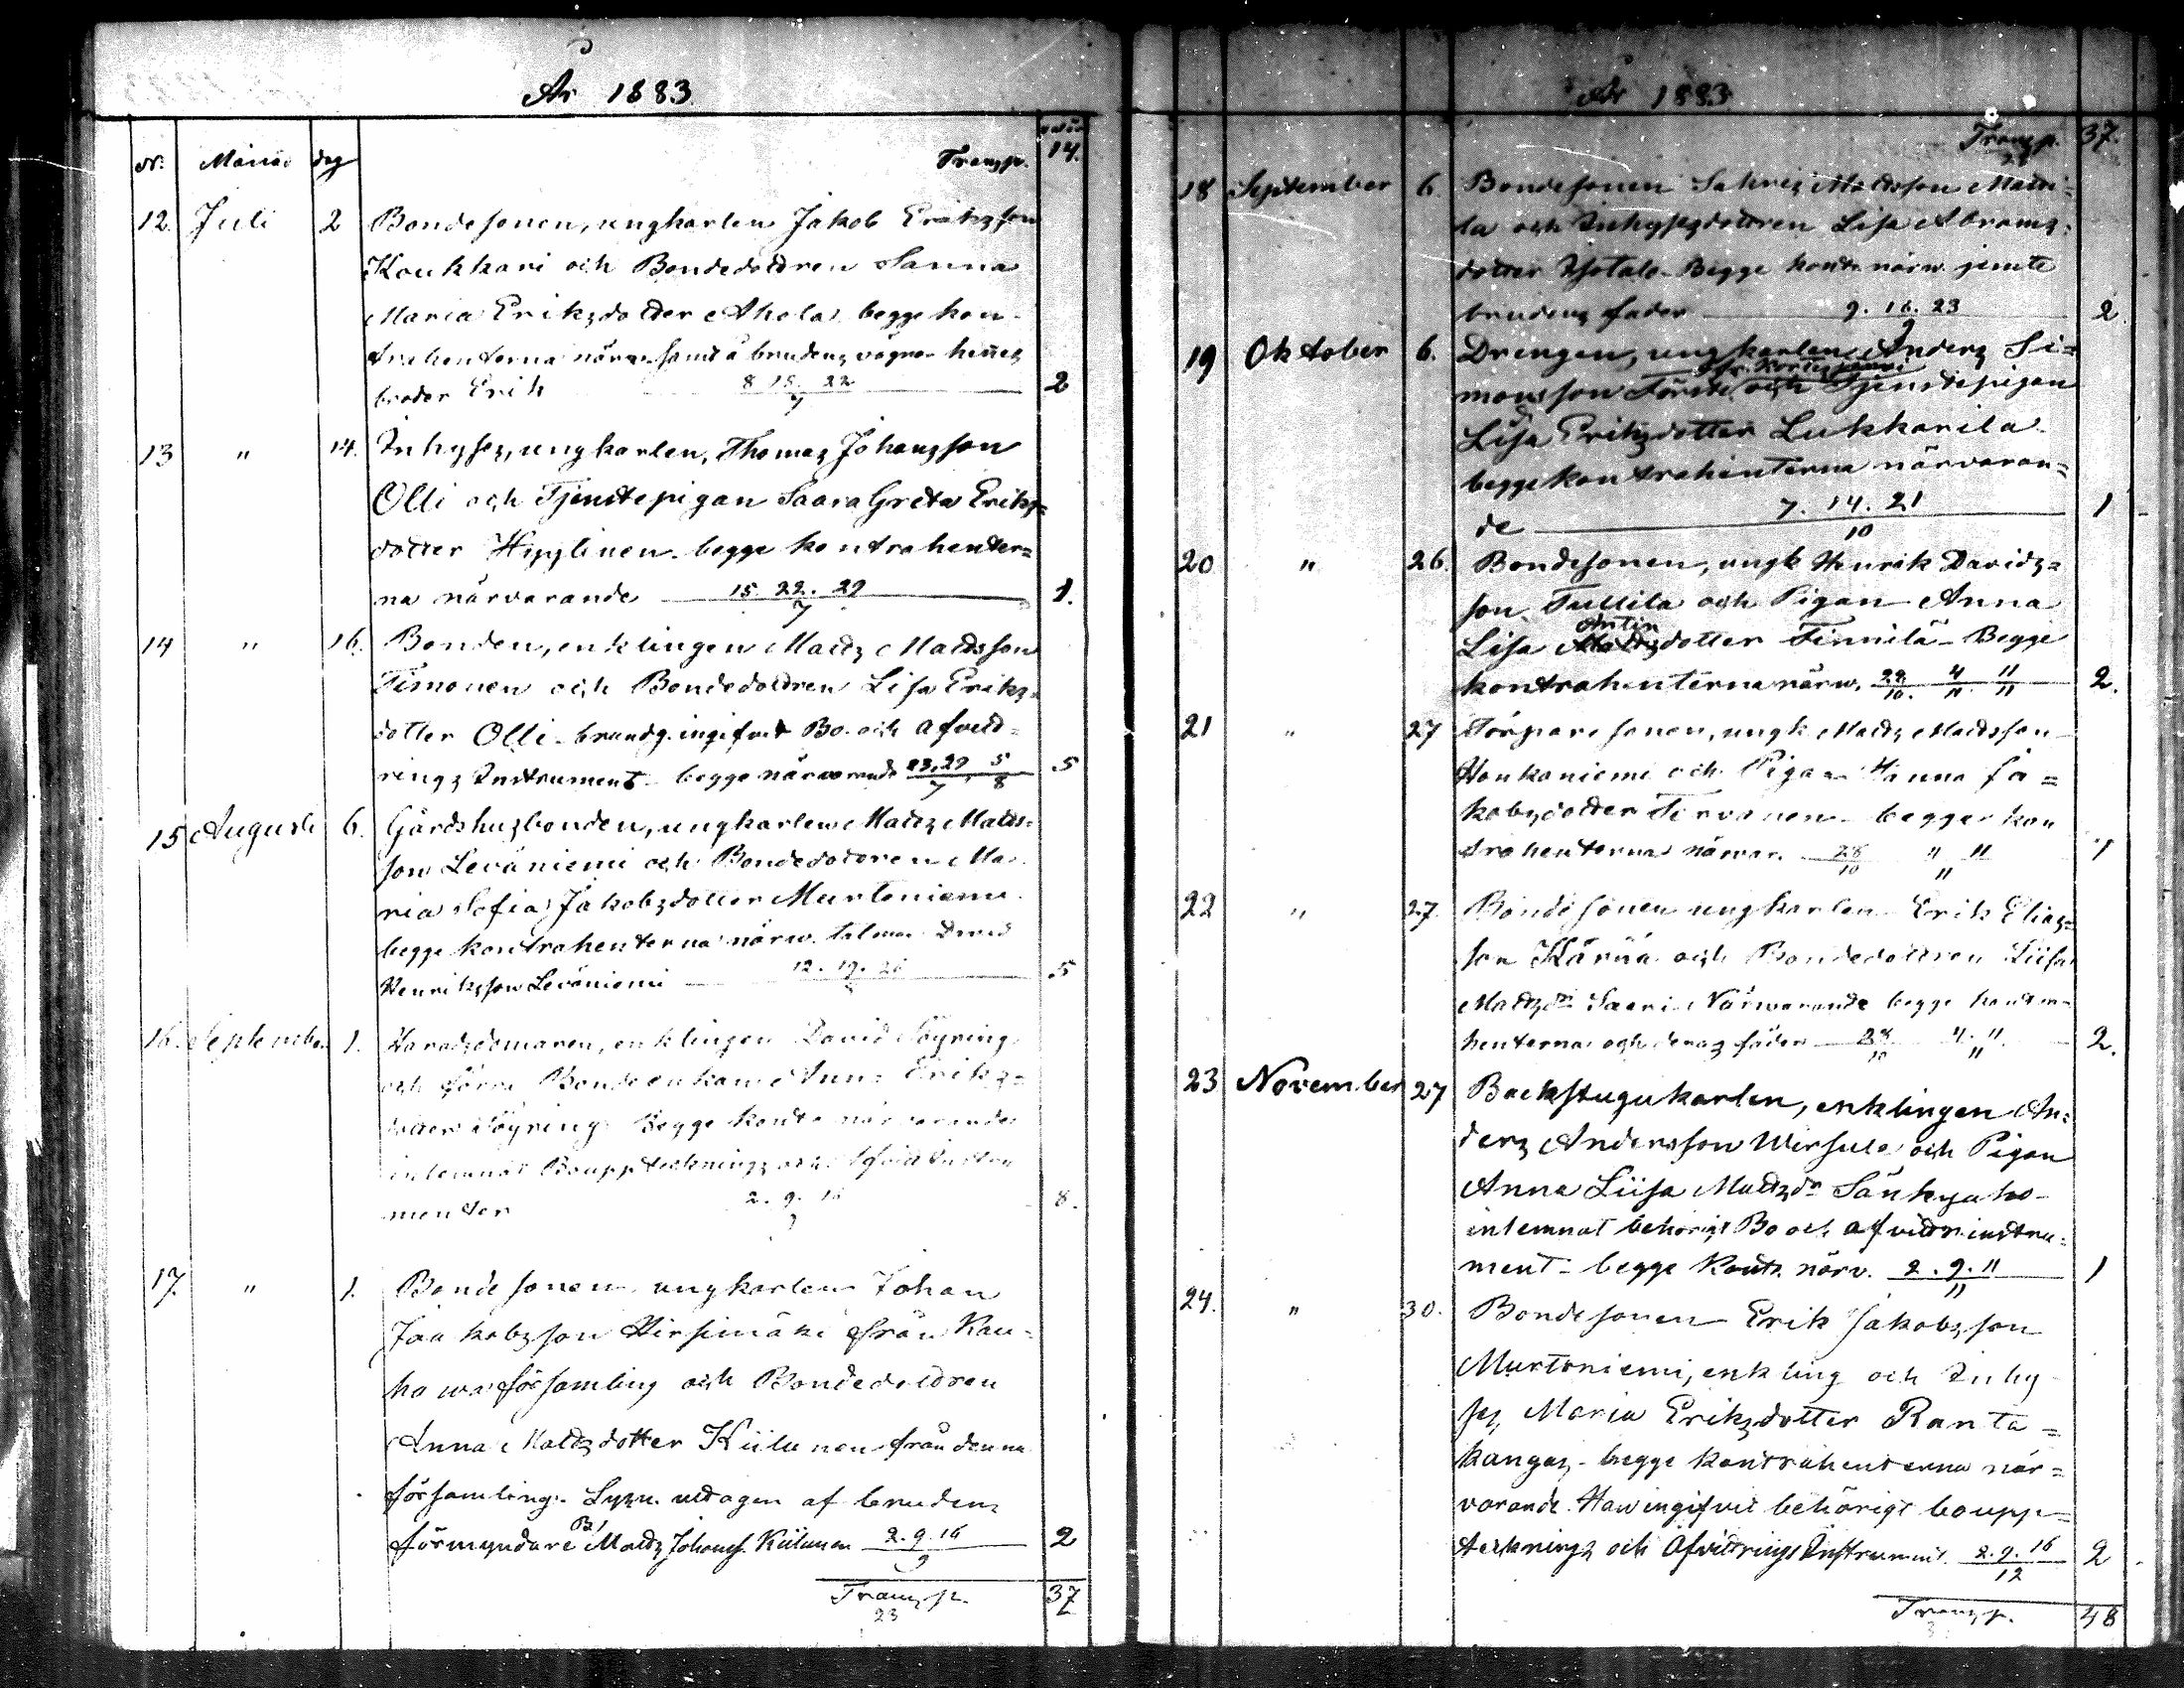 År 1883
Nr. Månad dag Transp. 14.
12. Juli 2 Bondesonen, ungkarlen Jakob Eriksson
Koukkari och Bondedottren Sanna
Maria Eriksdotter Ahola begge kon-
trahenterna närv. samt å brudens vägnar hennes
broder Erik 8. 15. 22 / 7 2
13 " 14. Inhyses, ungkarlen, Thomas Johansson
Olli och Tjenstepigan Saara Greta Eriks=
dotter Hyylinen. begge kontrahenter=
na närvarande 15. 22. 29 / 7 1.
14 " 16. Bonden, enklingen Matts Mattsson
Timonen och Bondedottren Lisa Eriks=
dotter Olli. brudg. ingifvit Bo- och afvitt=
rings Instrument. begge närvarande 23. 29 / 7 5 / 8 5
15 Augusti 6. Gårdshusbonden, ungkarlen Matts Matts=
son Leväniemi och Bondedottren Ma-
ria Sofia Jakobsdotter Murtoniemi.
begge kontrahenterna närv. talman David
Henriksson Leväniemi 12. 19. 26 5
16. September 1. Häradsdomaren, enklingen David Töyring
och förra Bondeenkan Anna Eriks=
dotter Töyring. Begge kontr. närvarande
inlemnat Bouppteknings och Afvittr. Instru
menter 2. 9. 16 / 9 8.
17. " 1. Bondesonen, ungkarlen Johan
Jaakobsson Hirsimäki från Kau=
hava församling och Bondedottren
Anna Mattsdotter Kiilunen från denna
församling. Lysn. uttagen af brudens
förmyndare B/ Matts Johanss. Kiilunen 2. 9. 16 / 9 2
Transp. 37
23
År 1883
Transp. 37.
23
18 September 6. Bondesonen Sakris Mattsson Matti=
la och Inhysesdottren Lisa Abrams=
dotter Isotalo. Begge kontr. närv. jemte
brudens fader 9. 16. 23 2.
19 Oktober 6. Drengen, ungkarlen Anders Si=
monsson Förste och Tjenstepigan
Lisa Eriksdotter Lukkarila
begge kontrahenterna närvaran=
de 7. 14. 21 / 10 1
20 " 26. Bondesonen, ungk. Henrik Davids=
son Tullila och Pigan Anna
Antin
Lisa Mattsdotter Finnilä. Begge
kontrahenterna närv. 28 / 10. 4 / 11 11 / 11 2.
21 " 27 Torparesonen, ungk. Matts Mattsson
Honkaniemi och Pigan Hanna Ja=
kobsdotter Tervonen. begge kon
trahenterna närvar. 28 / 10 4 11 / 11 1
22 " 27. Bondesonen ungkarlen Erik Elias=
son Kärnä och Bondedottren Liisa
Mattsdr. Saari. Närvarande begge kontra=
henterna och deras fäder 28 / 10 4. 11. / 11 2.
23 November 27 Backstugukarlen, enklingen An=
ders Andersson Wirsula och Pigan
Anna Liisa Mattsdr Sänkyaho
inlemnat behörigt Bo och afvittr. instru=
ment. begge kontr. närv. 2. 9. 11 / 11 1
24. " 30. Bondesonen Erik Jakobsson
Murtoniemi, enkling och Inhy
ses, Maria Eriksdotter Ranta=
kangas. begge kontrahenterna när=
varande. Han ingifvit behörigt boupp=
tecknings och Afvittrings Instrument. 2. 9. 16 / 12 2
Transp. 48